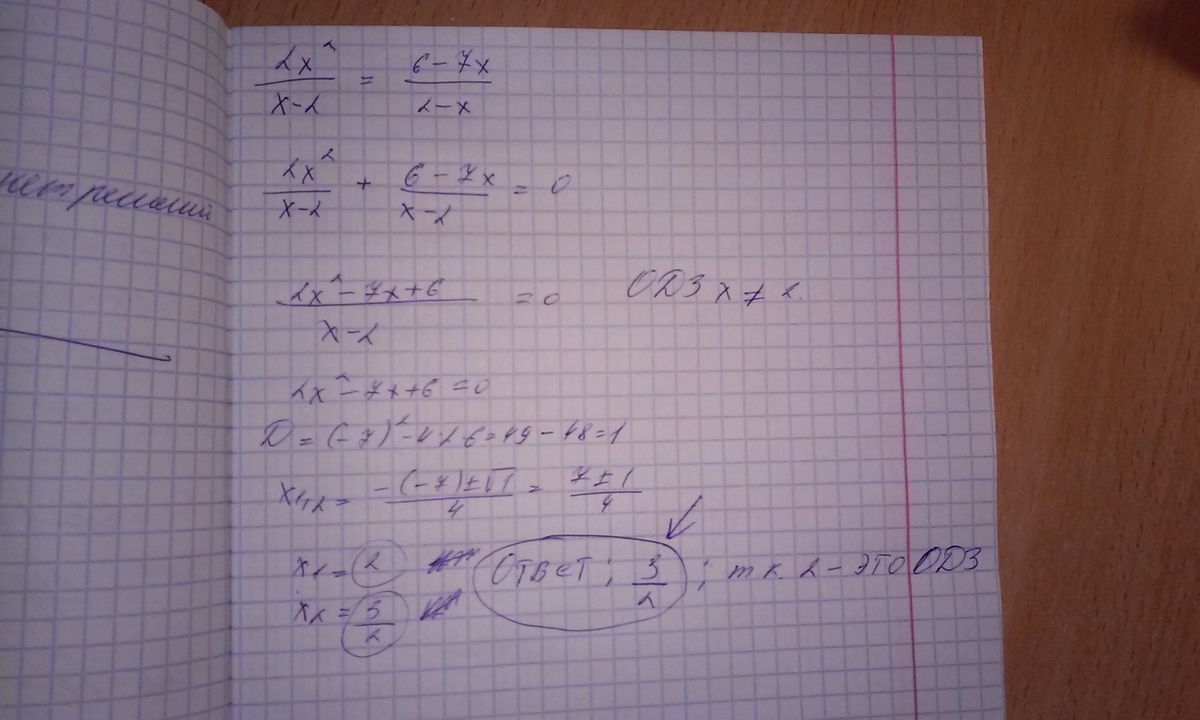 нет решений
2x² / x-2 = 6-7x / 2-x
2x² / x-2 + 6-7x / x-2 = 0
2x²-7x+6 / x-2 = 0 ОДЗ x≠2.
2x²-7x+6=0
D=(-7)²-4·2·6=49-48=1
x1,2 = -(-7)±√1 / 4 = 7±1 / 4
x1=2 Ответ; 3/2; т.к. 2-это ОДЗ
x2=3/2